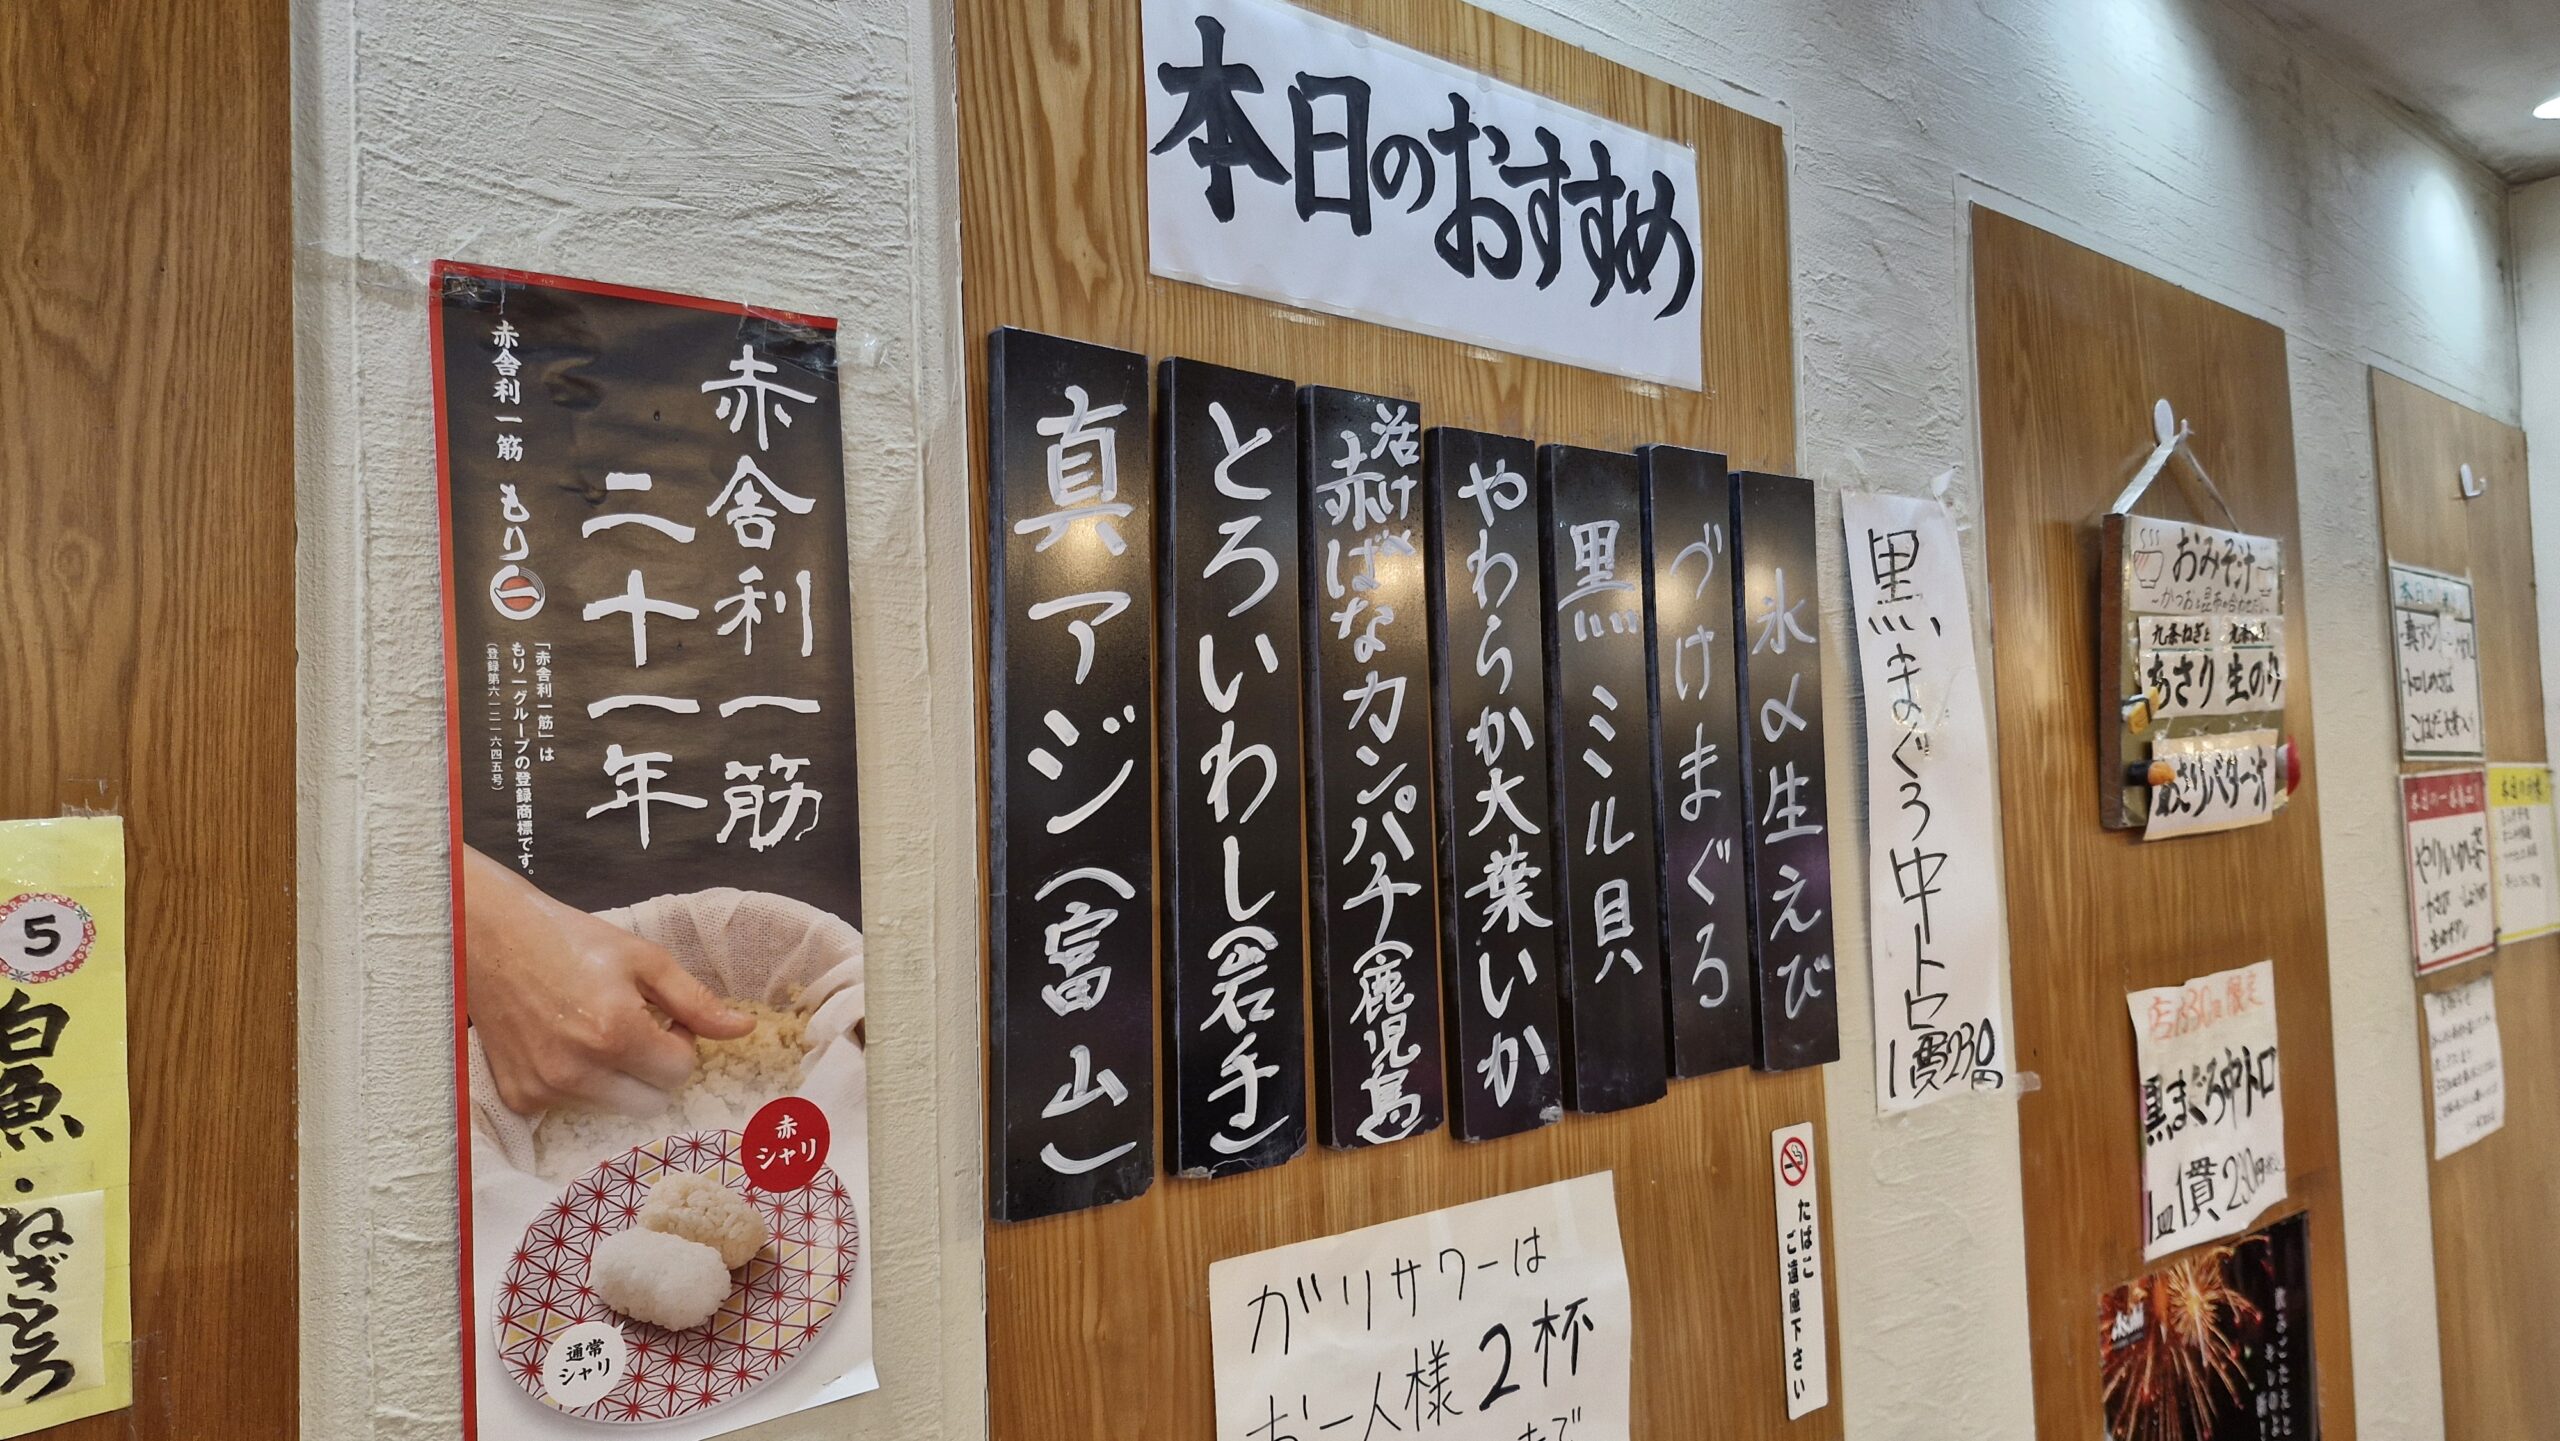 5
白魚・ねぎとろ
赤舎利一筋
二十一年
赤舎利一筋 もり一
「赤舎利一筋」は
もり一グループの登録商標です。
(登録第六一二一六四五号)
赤
シャリ
通常
シャリ
本日のおすすめ
真アジ(富山)
とろいわし(岩手)
活け
赤ばなカンパチ(鹿児島)
やわらか大葉いか
黒ミル貝
づけまぐろ
氷〆生えび
ガリサワーは
お一人様2杯
まで
黒まぐろ中トロ
1貫230円
たばこ
ご遠慮下さい
おみそ汁
九条ねぎと
あさり
九条ねぎと
生のり
あさりバター汁
黒まぐろ中トロ
1皿1貫230円
Asahi
真アジ
トロしめさば
こはだ大葉